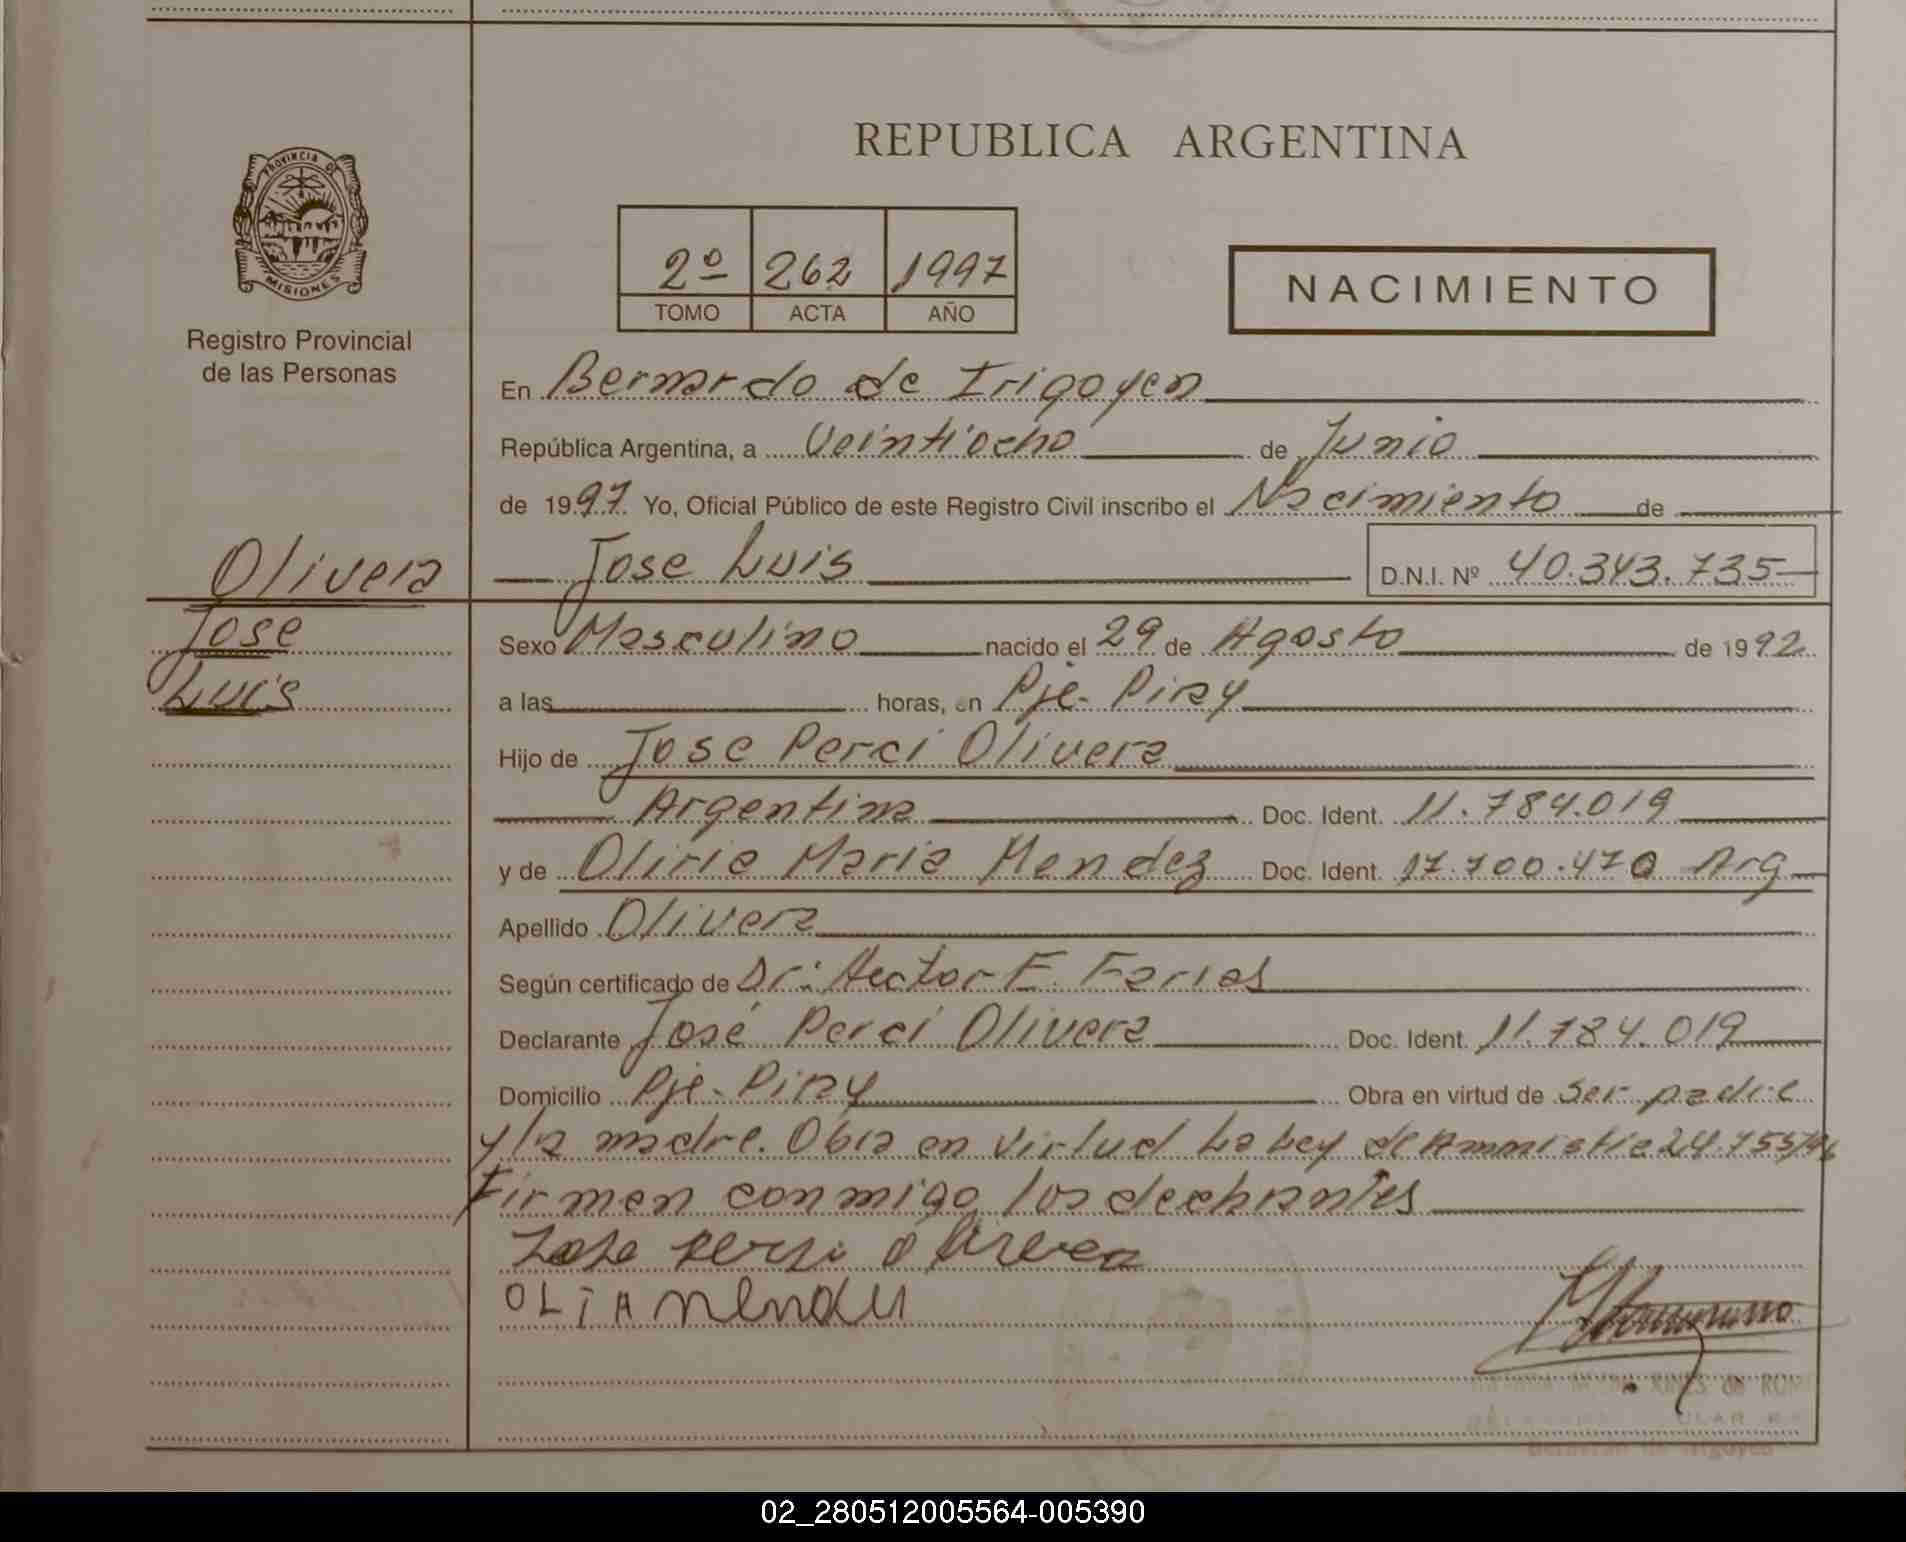 PROVINCIA DE
MISIONES
Registro Provincial
de las Personas
REPUBLICA ARGENTINA
2º 262 1997
TOMO ACTA AÑO
NACIMIENTO
En Bernardo de Irigoyen
República Argentina, a Veintiocho de Junio
de 1997. Yo, Oficial Público de este Registro Civil inscribo el Nacimiento de
Olivera
Jose Luis D.N.I. Nº 40.343.735
Jose
Luis
Sexo Masculino nacido el 29 de Agosto de 1992
a las horas, en Pje. Piray
Hijo de Jose Perci Olivera
Argentina Doc. Ident. 11.784.019
y de Oliria Maria Mendez Doc. Ident. 17.700.470 Arg
Apellido Olivera
Según certificado de Dr: Hector E. Farias
Declarante José Perci Olivera Doc. Ident. 11.784.019
Domicilio Pje. Piray Obra en virtud de ser padre
y la madre. Obra en Virtud La Ley de Ammistia 24.755/96
Firman conmigo los declarantes
Jose Persi Olivera
OLIA Mendez
02_280512005564-005390